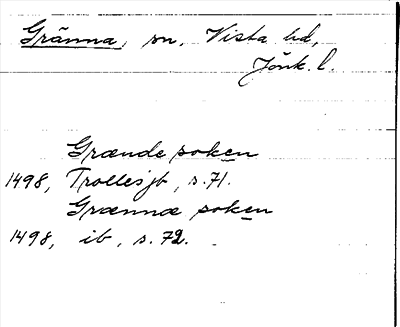 Gränna, sn, Vista hd,
Jönk. l.
Grænde soken
1498, Trolles jb, s. 71.
Grænnæ soken
1498, ib, s. 72.